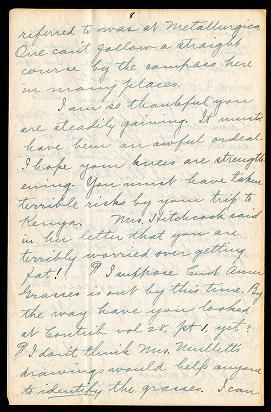 8
referred to was at Metallurgica.
One can't follow a straight
course by the compass here
in many places.
I am so thankful you
are steadily gaining. It must
have been an awful ordeal.
I hope your knees are strength
ening. You must have taken
terrible risks by your trip to
Kenya. Mrs. Hitchcock said
in her letter that you are
terribly worried over getting
fat! ¶ I suppose Amer
Grasses is out by this time. By
the way have you looked
at Contrib vol 28. pt 1, yet?
¶ I don't think Mrs. Mullett's
drawings would help anyone
to identify the grasses. I can